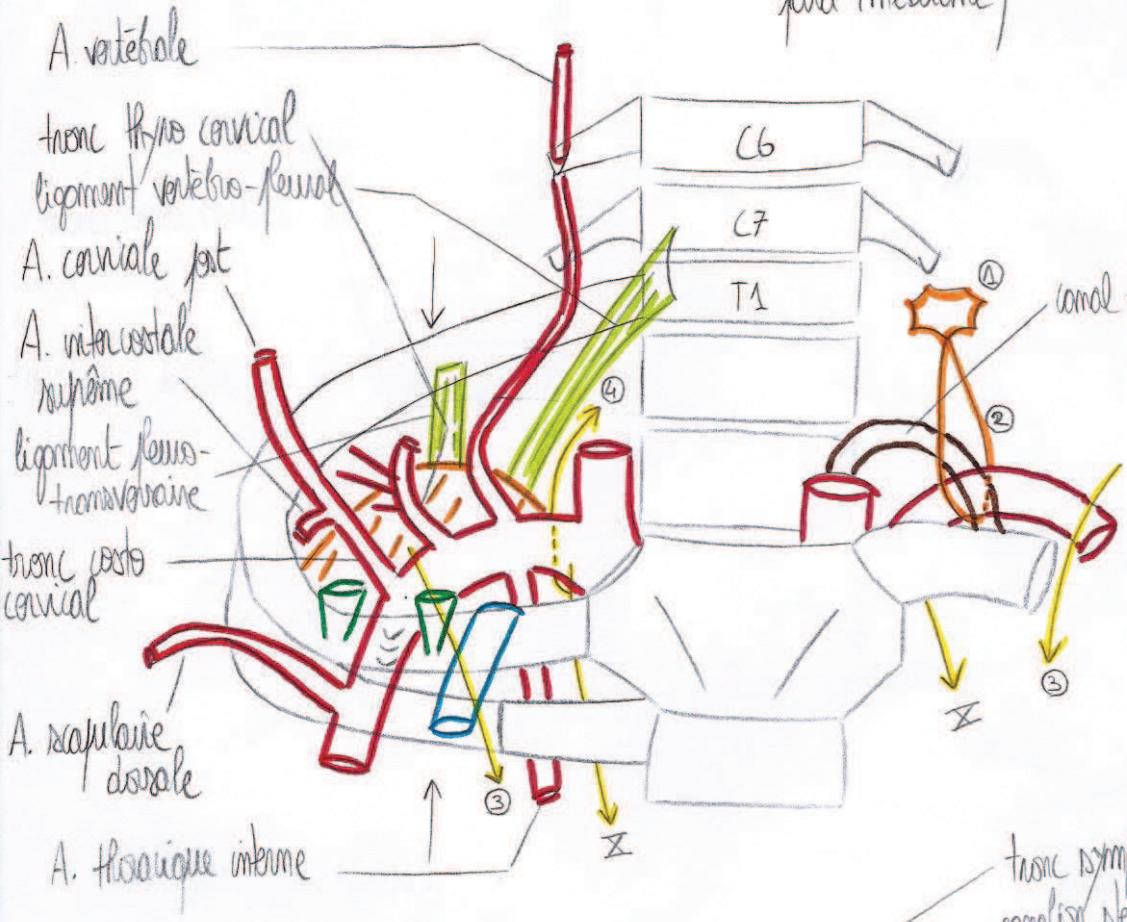 para
A. vertébrale
tronc thyro cervical
ligament vertébro-pleural
A. cervicale post
A. intercostale
suprême
ligament pleuro-
transversaire
tronc costo
cervical
A. scapulaire
dorsale
A. thoracique interne
C6
C7
T1
1
canal
2
4
3
X
3
X
tronc sym